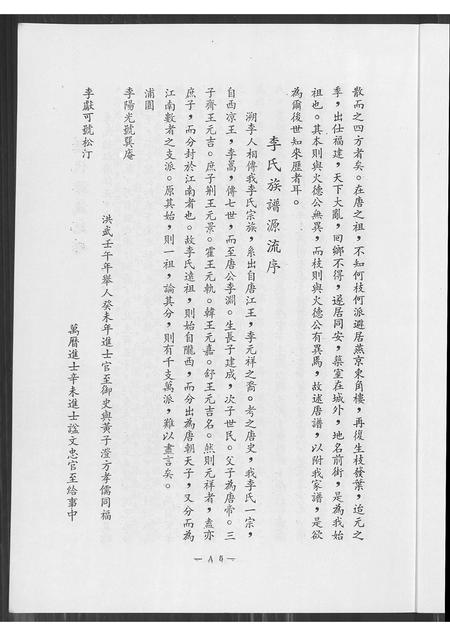 散而之四方者矣。在唐之祖，不知何枝何派避居燕京東角樓，再復生枝發葉，迨元之
季，出仕福建，天下大亂，回鄉不得，遂居同安，築室在城外，地名前街，是為我始
祖也。其本則與火德公無異，而枝則與火德公有異焉，故述唐譜，以附我家譜，是欲
為爾後世知來歷者耳。
李氏族譜源流序
溯李人相傳我李氏宗族，系出自唐江王，李元祥之裔。考之唐史，我李氏一宗，
自西凉王，李暠，傳七世，而至唐公李淵。生長子建成，次子世民。父子為唐帝。三
子齊王元吉。庶子荆王元景。霍王元軌。韓王元嘉。舒王元吉名。然則元祥者，盖亦
庶子，而分封於江南者也。故李氏遠祖，則始自隴西，而分出為唐朝天子，又分而為
江南數者之支派。原其始，則一祖，論其分，則有千支萬派，難以盡言矣。
浦園
李陽光號巽庵
洪武壬午年舉人癸未年進士官至御史與黃子澄方孝儒同福
李獻可號松汀
萬曆進士辛未進士諡文忠官至給事中
— A 5 —